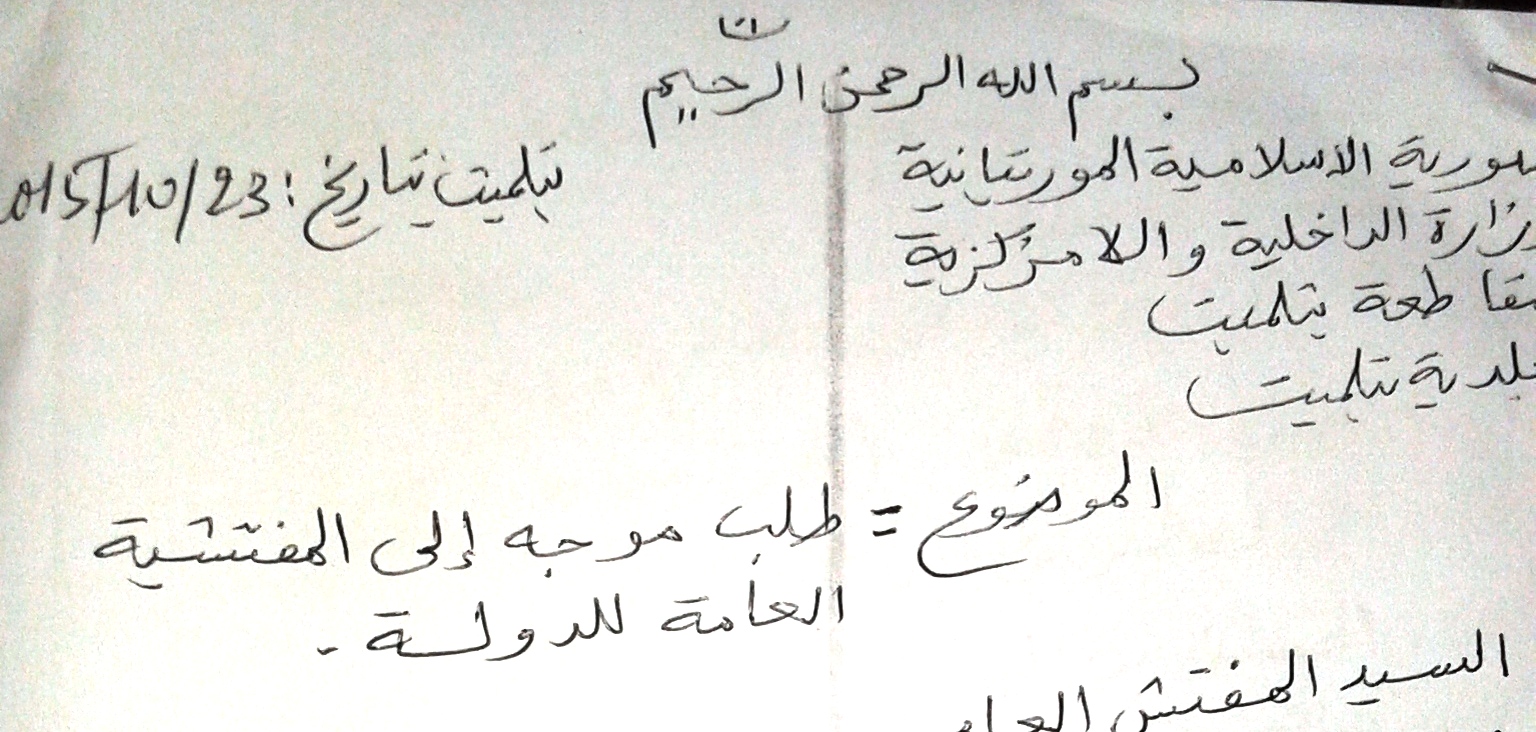 بسم الله الرحمن الرحيم
الاسلامية المورتانية
الداخلية واللامركزية
بتلميت
بتلميت
بتلميت بتاريخ: 015/10/23
الموضوع = طلب موجه إلى المفتشية
العامة للدولة -
السيد المفتش العام